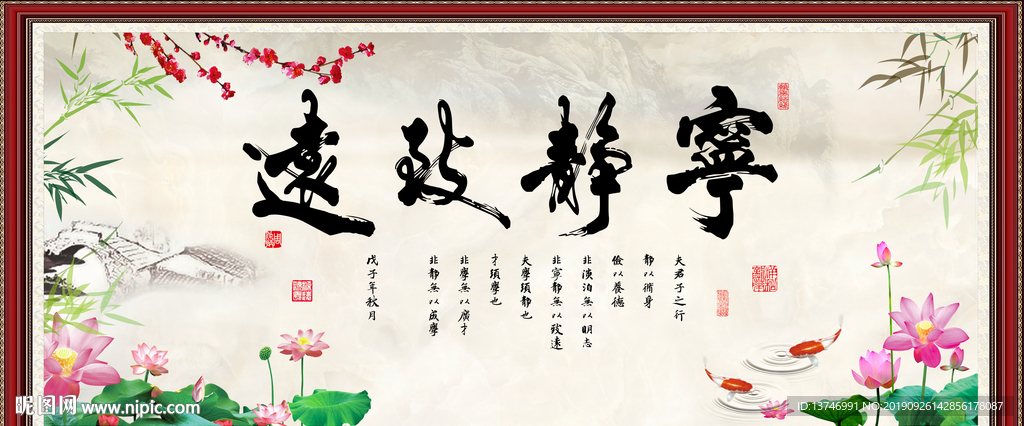 寧靜致遠
夫君子之行
靜以脩身
儉以養德
非淡泊無以明志
非寧靜無以致遠
夫學須靜也
才須學也
非學無以廣才
非靜無以成學
戊子年秋月
昵图网 www.nipic.com
ID:13746991 NO:20190926142856178087